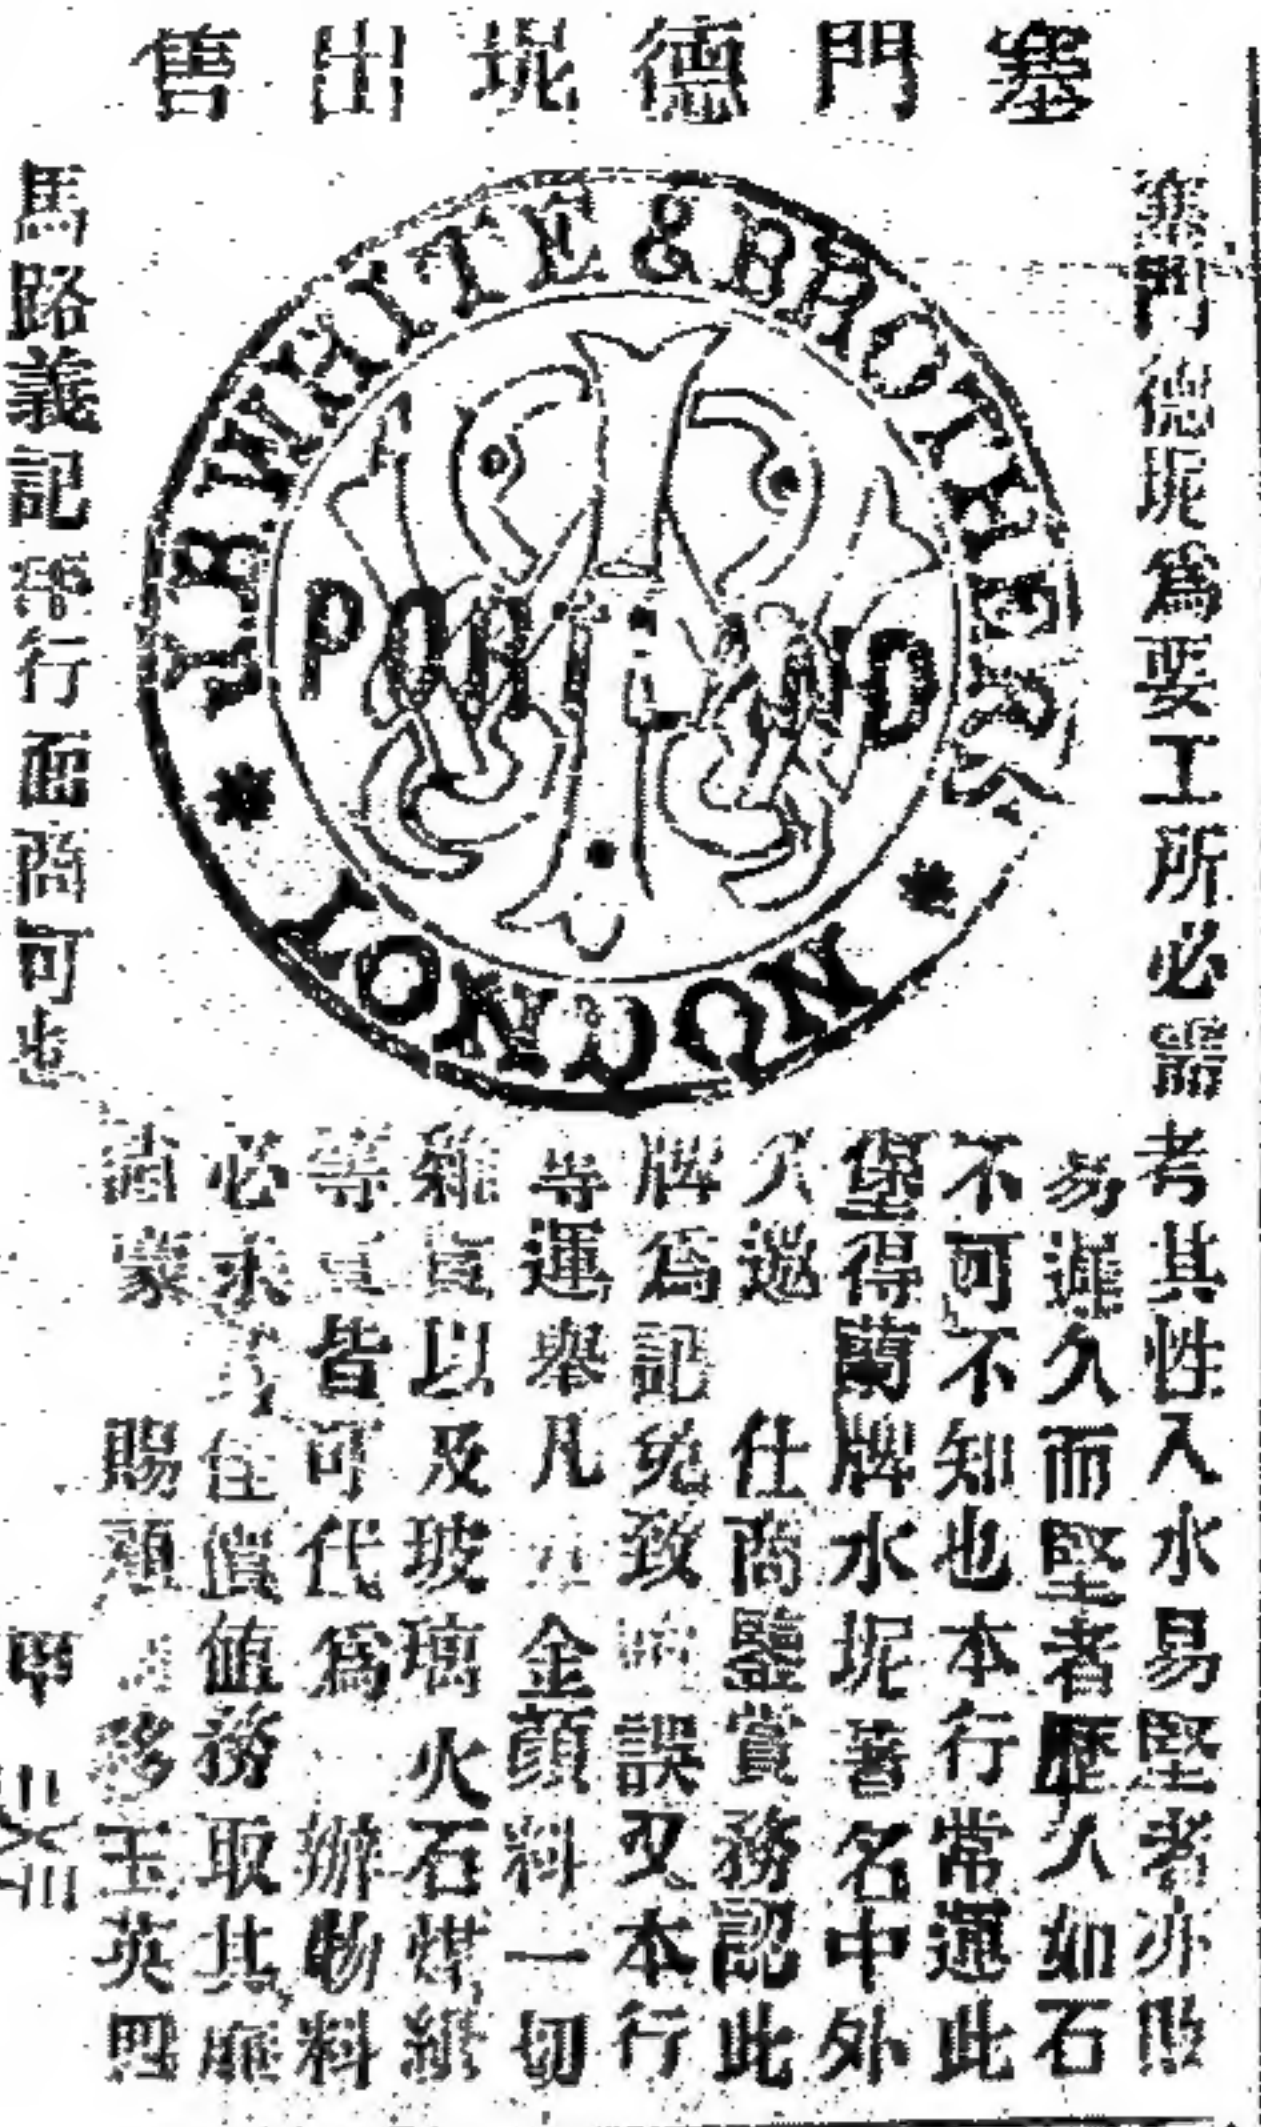 塞門德坭出售
J.B.WHITE & BROTHERS
PORTLAND
LONDON
塞門德坭爲要工所必需考其性入水易堅者亦敗
易遲久而堅者歷久如石
不可不知也本行常運此
堡得蘭牌水坭著名中外
久邀 仕商鑒賞務認此
牌爲記免致 誤又本行
等運舉凡五金顔料一切
雜貨以及玻璃火石煤鐵
等 皆可代爲 辦物料
必求 佳價值務取其廉
請蒙 賜顧 移玉英四
馬路義記 行面商可也
甲